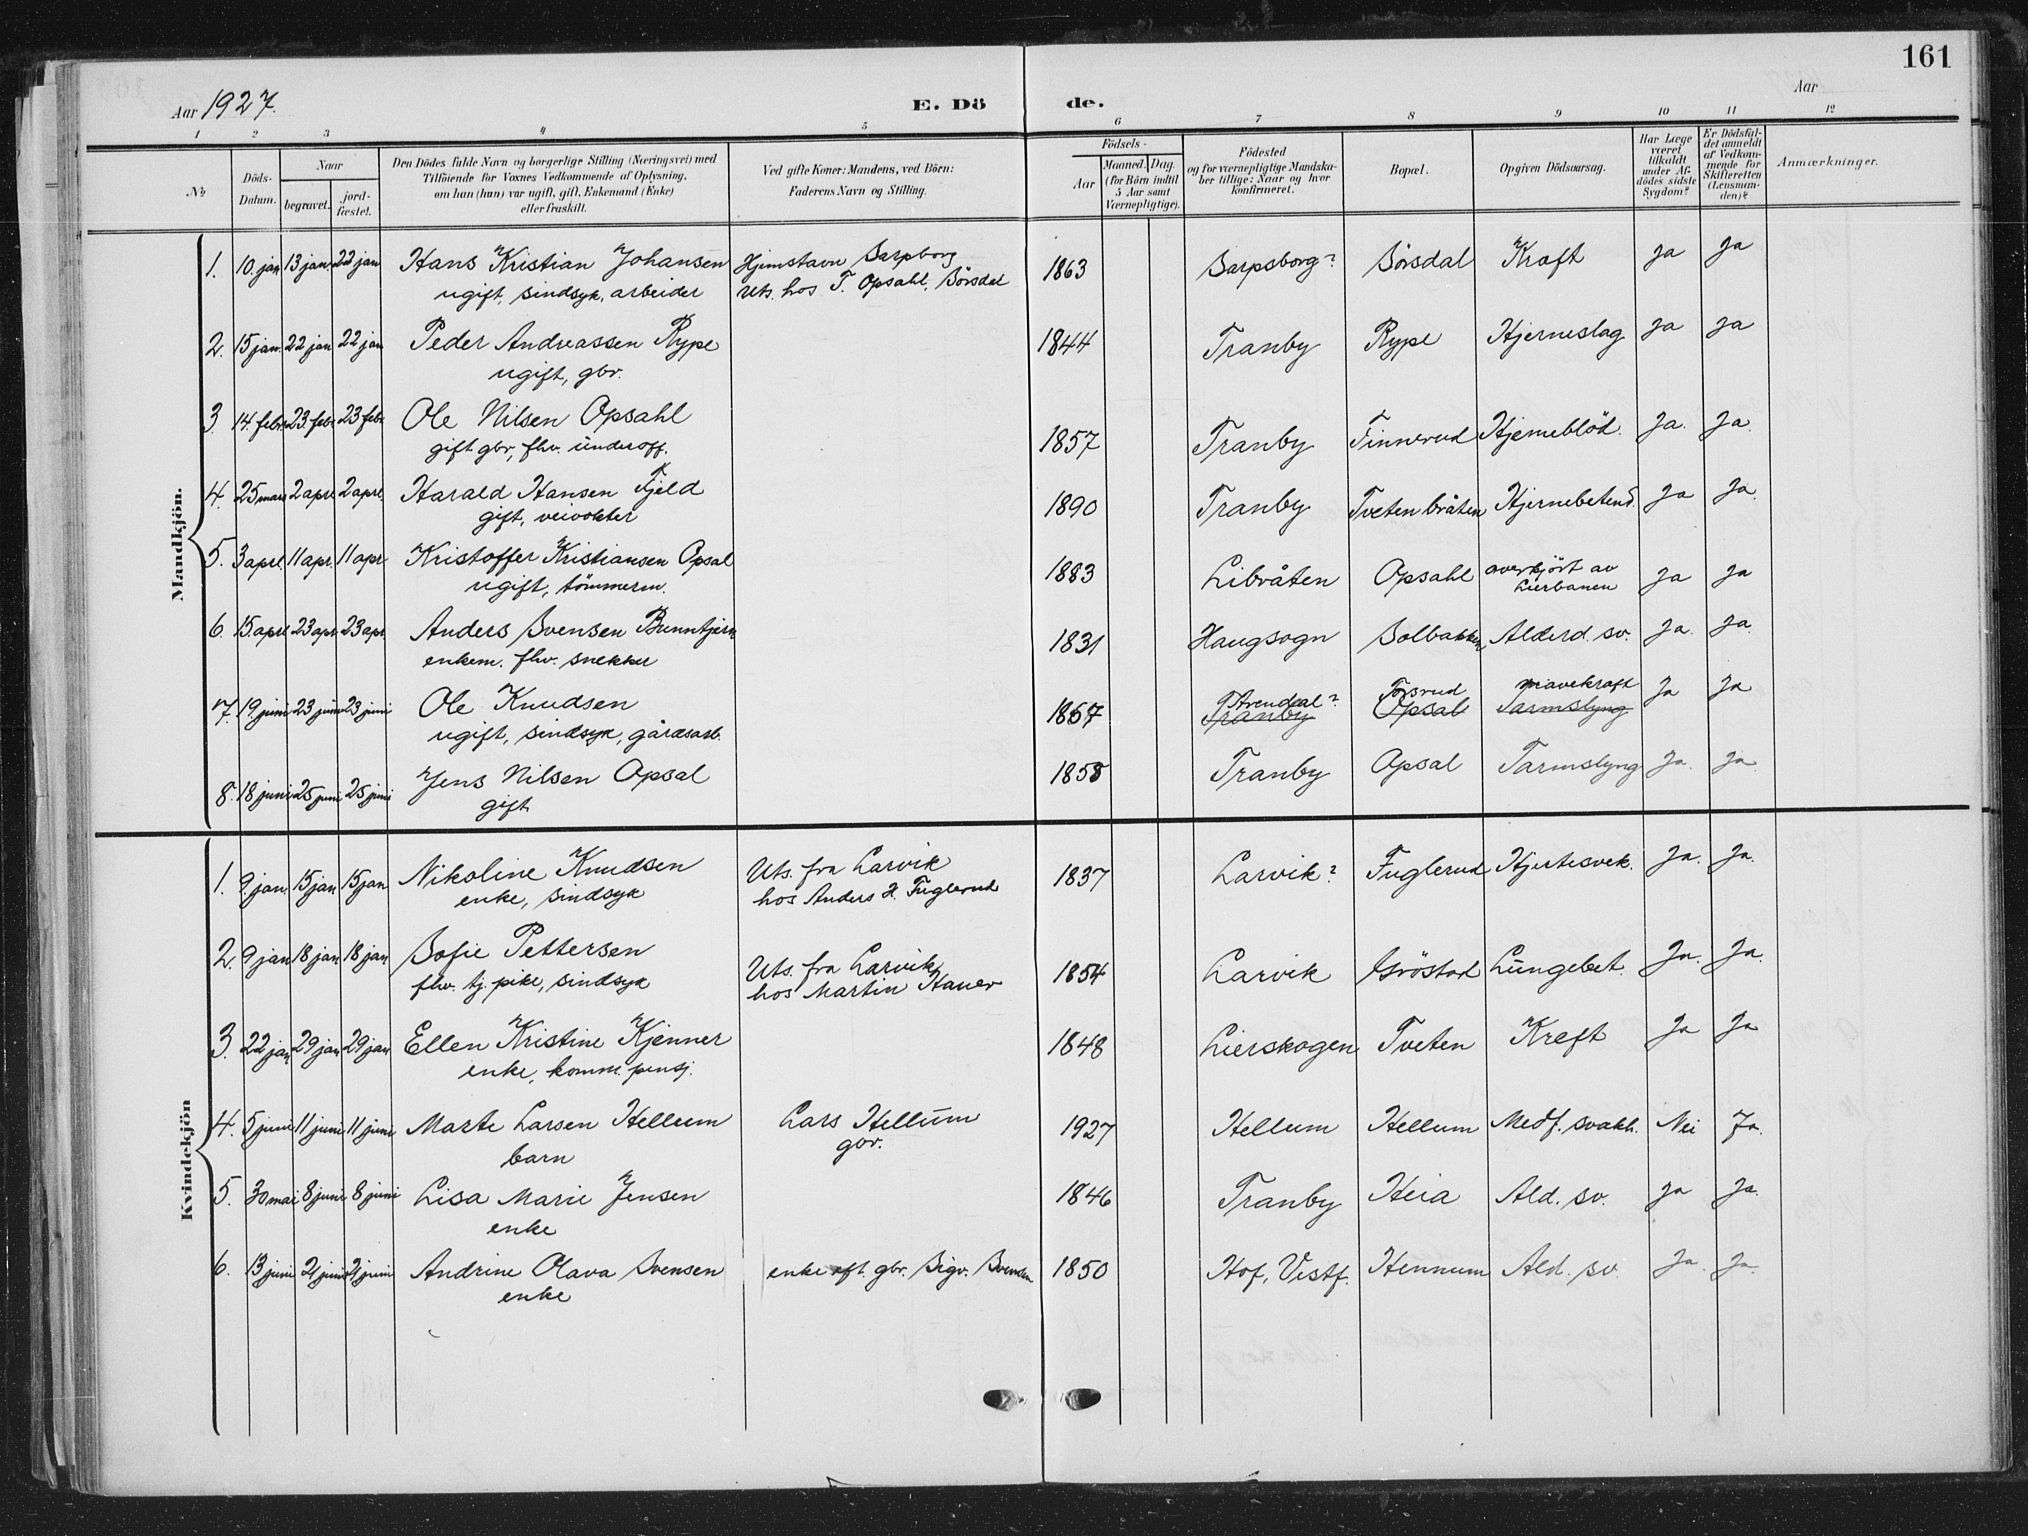 161
Aar 1927.
E. Dö
de.
Aar
1 2 3 4 5 6 7 8 9 10 11 12
No
Döds-Datum.
Naar
begravet.
jord-fæstet.
Den Dödes fulde Navn og borgerlige Stilling (Næringsvei) med
Tilföiende for Voxnes Vedkommende af Oplysning,
om han (hun) var ugift, gift, Enkemand (Enke)
eller fraskilt.
Ved gifte Koner: Mandens, ved Börn:
Faderens Navn og Stilling.
Födsels-
Aar
Maaned. Dag.
(for Börn indtil
5 Aar samt
Værnepligtige).
Födested
og for værnepligtige Mandska-
ber tillige: Naar og hvor
Konfirmeret.
Bopæl.
Opgiven Dödsaarsag.
Har Læge
været
tilkaldt
under Af-
dödes sidste
Sygdom?
Er Dödsfal-
det anmeldt
af Vedkom-
mende for
Skifteretten
(Lensman-
den)?
Anmærkninger.
Mandkjön.
1. 10. jan 13 jan 22 jan Hans Kristian Johansen Hjemstavn Sarpborg 1863 Sarpsborg? Börsdal Kræft Ja Ja
ugift, sindsyk, arbeider Uts. hos T. Opsahl, Börsdal
2. 15 jan. 22 jan 22 jan Peder Andreassen Rype 1844 Tranby Rype Hjerneslag Ja Ja
ugift, gbr.
3. 14. febr. 23. febr. 23 febr. Ole Nilsen Opsahl 1857 Tranby Finnerud Hjerneblöd. Ja. Ja.
gift gbr, fhv. underoff.
4. 25 mars 2 april 2 april Harald Hansen Fjeld 1890 Tranby Tveten bråten Hjernebetend. Ja Ja.
gift, veivokter
5. 3 april 11 apr. 11 apr. Kristoffer Kristiansen Opsal 1883 Libråten Opsahl overkjört av Ja Ja
ugift, tömmerm. Lierbanen
6. 15. april 23 apr. 23 apr. Anders Svensen Bunntjern 1831 Haugsogn Solbakken Alderd. sv. Ja. Ja.
enkem. fhv. snekker
7. 19 juni 23 juni 23 juni Ole Knudsen 1867 Arendal? Tosrud mavekræft Ja Ja
ugift, sindsyk, gårdsarb. Tranby Opsal Tarmslyng
8. 18 juni 25 juni 25 juni Jens Nilsen Opsal 1858 Tranby Opsal Tarmslyng Ja. Ja.
gift
Kvindekjön
1. 9. jan. 15 jan 15 jan Nikoline Knudsen Uts. fra Larvik 1837 Larvik? Fuglerud Hjertesvek. Ja. Ja.
enke, sindsyk hos Anders H. Fuglerud
2. 9 jan 18 jan 18 jan Sofie Pettersen Uts. fra Larvik, 1854 Larvik Gröstad Lungebet. Ja. Ja.
fhv. tj. pike, sindsyk hos Martin Hauer
3. 22 jan 29 jan 29 jan Ellen Kristine Kjenner 1848 Lierskogen Tveten Kreft Ja Ja
enke, komm. pensj.
4. 5 juni 11 juni 11 juni Marte Larsen Hellum Lars Hellum 1927 Hellum Hellum Medf. svakh. Nei Ja.
barn gbr.
5. 30 mai 8 juni 8 juni Lisa Marie Jensen 1846 Tranby Heia Ald. sv. Ja Ja.
enke
6. 13 juni 21 juni 21 juni Andrine Olava Svensen enke eft. gbr. Sigv. Svensen 1850 Hof, Vestf. Hennum Ald. sv. Ja. Ja.
enke